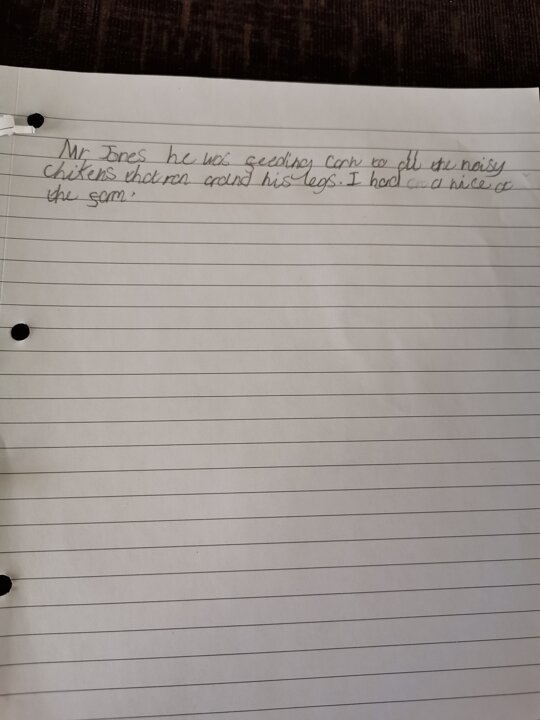 Mr Jones he was geeding Corn to all the noisy
chikens that ran around his legs. I had a nice a
the garm.